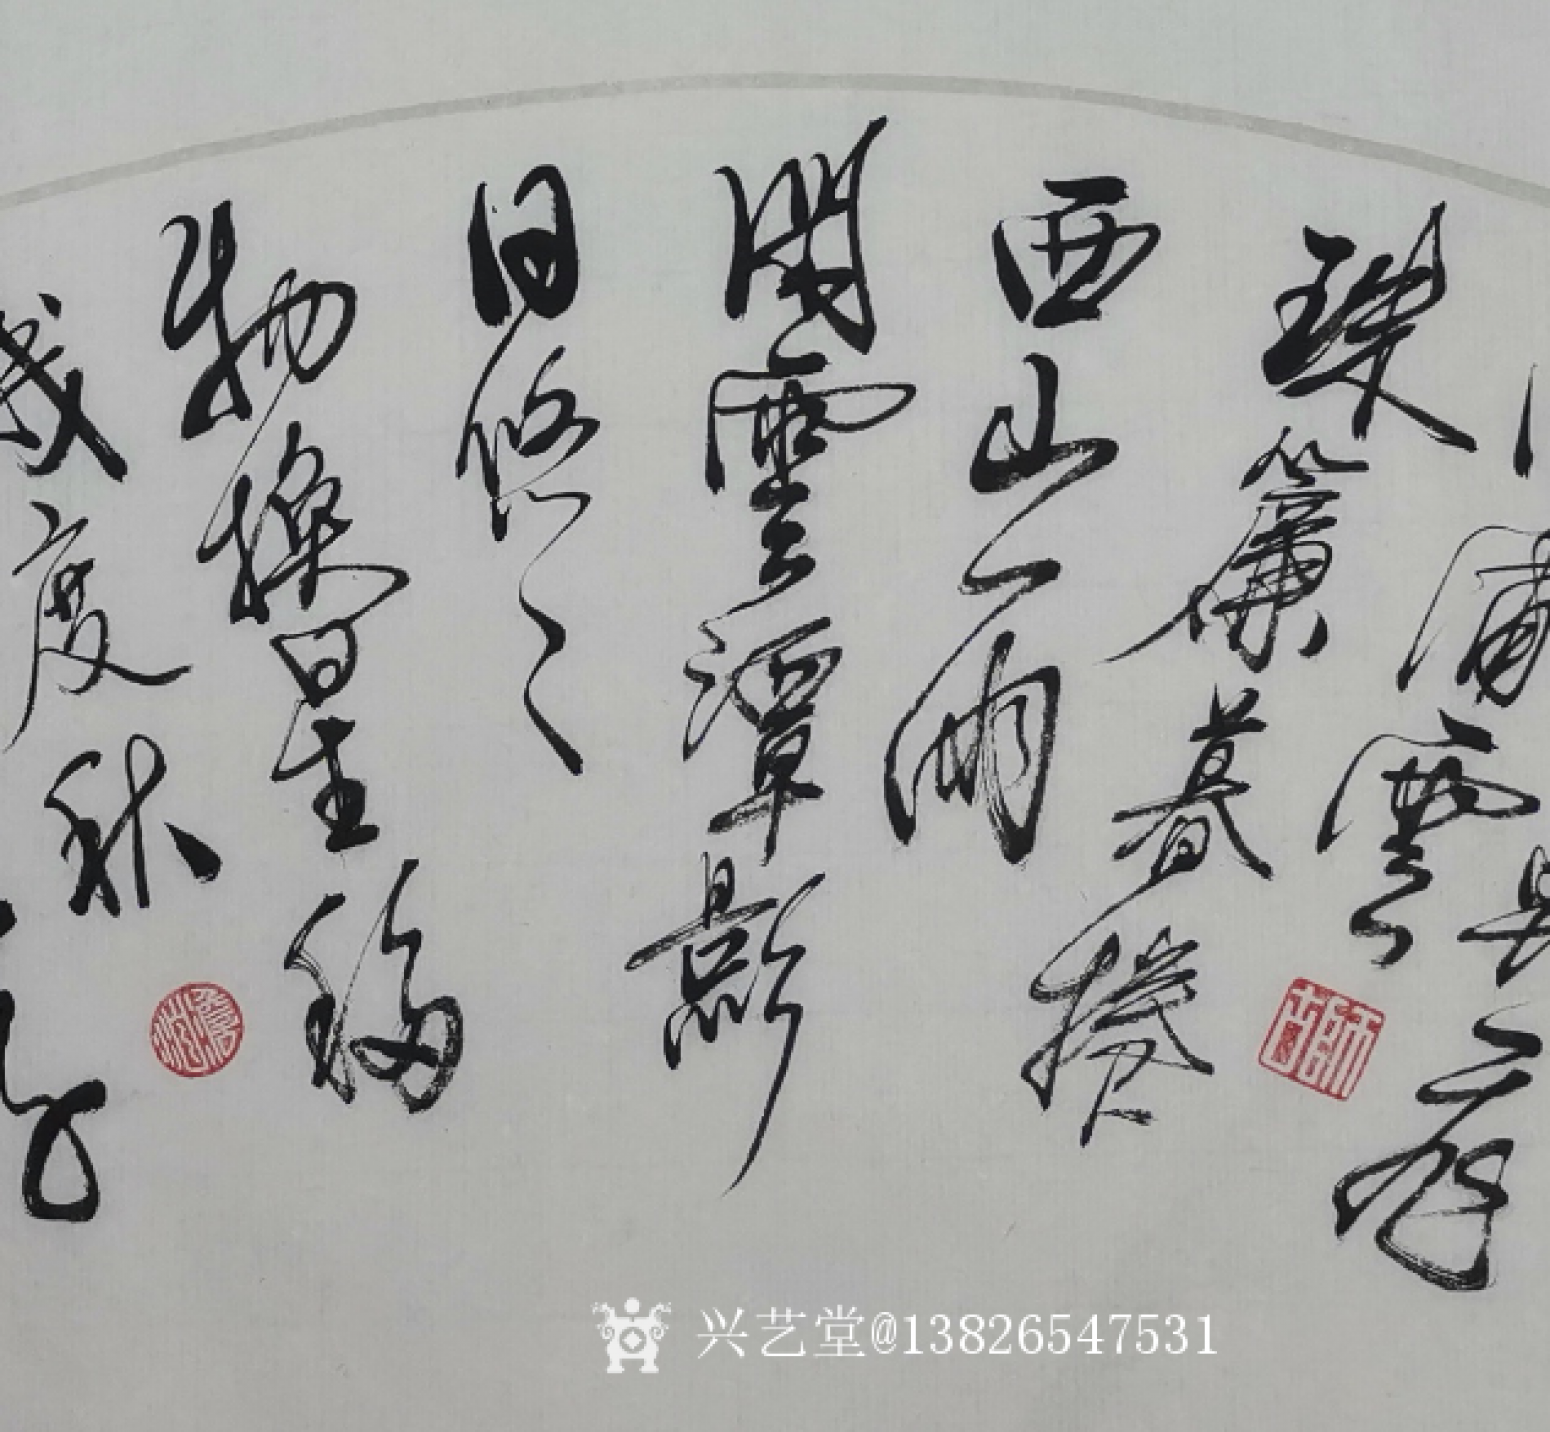 浦雲
珠簾暮捲
西山雨
閑雲潭影
日悠々
物換星移
幾度秋
師古
兴艺堂@13826547531